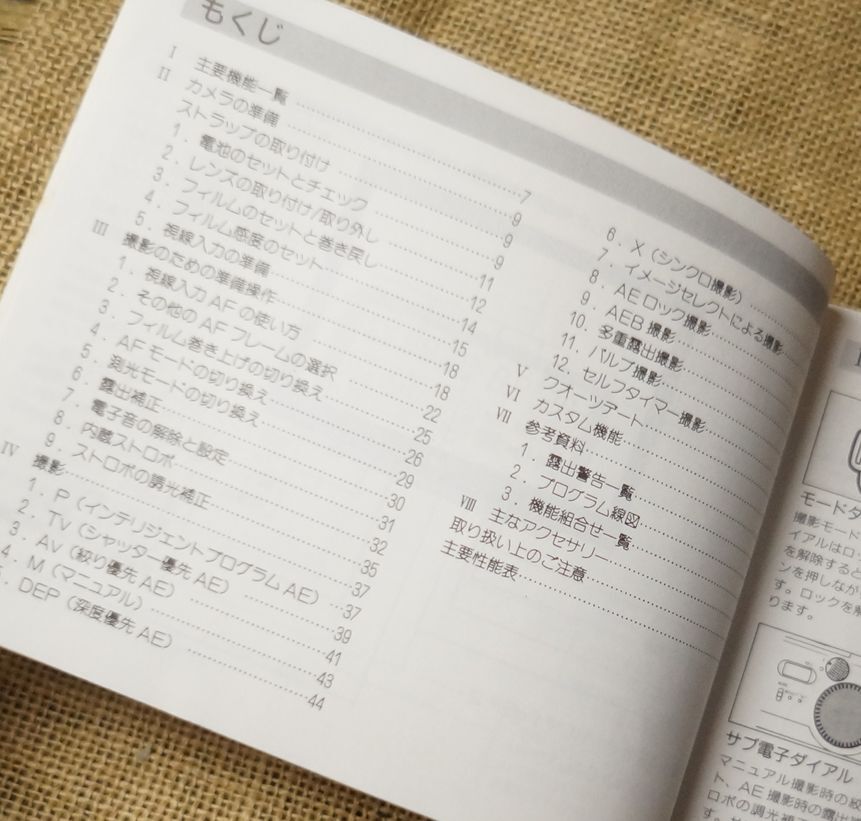 もくじ
I 主要機能一覧 7
II カメラの準備 9
ストラップの取り付け 9
1. 電池のセットとチェック 9
2. レンズの取り付け/取り外し 11
3. フィルムのセットと巻き戻し 12
4. フィルム感度のセット 14
5. 視線入力の準備 15
III 撮影のための準備操作 18
1. 視線入力 AF の使い方 18
2. その他の AF フレームの選択 22
3. フィルム巻き上げの切り換え 25
4. AF モードの切り換え 26
5. 発光モードの切り換え 29
6. 露出補正 30
7. 電子音の解除と設定 31
8. 内蔵ストロボ 32
9. ストロボの調光補正 35
IV 撮影 37
1. P（インテリジェントプログラム AE） 37
2. Tv（シャッター優先 AE） 39
3. Av（絞り優先 AE） 41
4. M（マニュアル） 43
5. DEP（深度優先 AE） 44
6. X（シンクロ撮影）
7. イメージセレクトによる撮影
8. AE ロック撮影
9. AEB 撮影
10. 多重露出撮影
11. バルブ撮影
12. セルフタイマー撮影
V クオーツデート
VI カスタム機能
VII 参考資料
1. 露出警告一覧
2. プログラム線図
3. 機能組合せ一覧
VIII 主なアクセサリー
取り扱い上のご注意
主要性能表
モードダ
撮影モード
イアルはロ
を解除すると
ンを押しなが
す。ロックを解
ります。
サブ電子ダイアル
マニュアル撮影時の絞
ト、AE 撮影時の露出
ロボの調光補